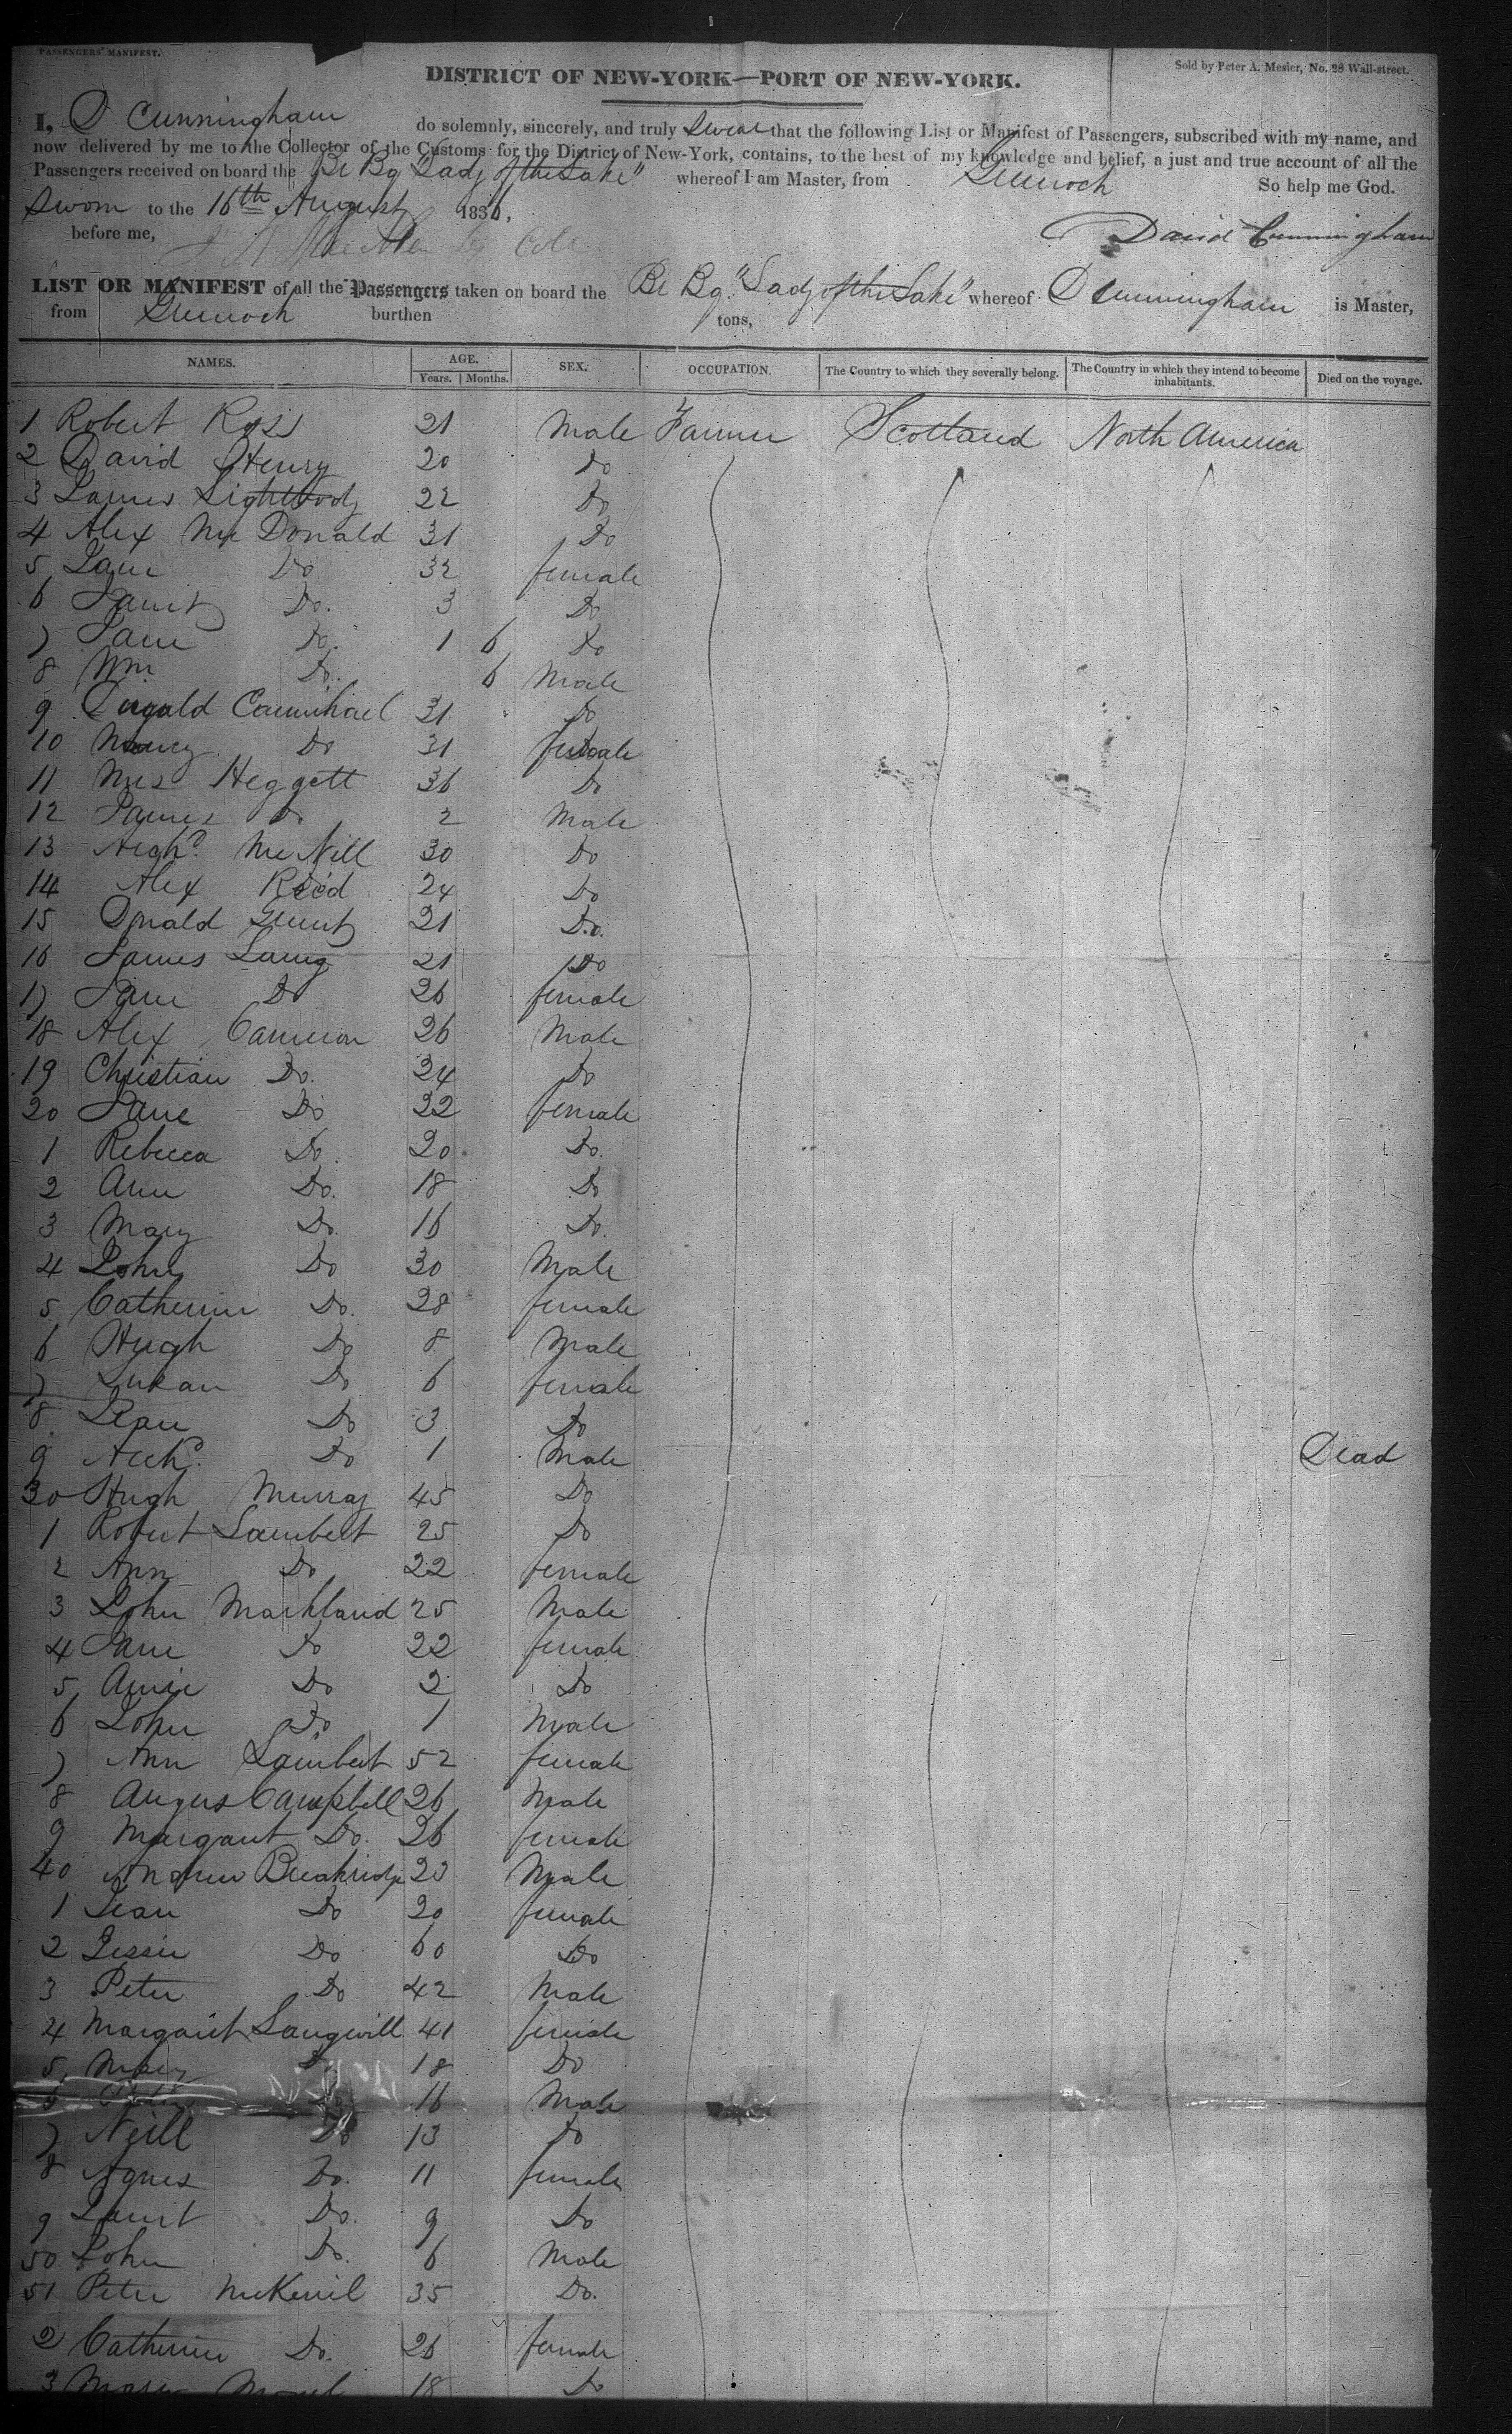 PASSENGERS' MANIFEST.
Sold by Peter A. Mesier, No. 28 Wall-street.
DISTRICT OF NEW-YORK—PORT OF NEW-YORK.
I, D Cunningham do solemnly, sincerely, and truly Swear that the following List or Manifest of Passengers, subscribed with my name, and
now delivered by me to the Collector of the Customs for the District of New-York, contains, to the best of my knowledge and belief, a just and true account of all the
Passengers received on board the Br Bg "Lady of the Lake" whereof I am Master, from Greenock So help me God.
Sworn to the 16th August 1836,
before me, David Cunningham
LIST OR MANIFEST of all the Passengers taken on board the Br Bg. "Lady of the Lake" whereof D Cunningham is Master,
from Greenock burthen tons,
NAMES. AGE. SEX. OCCUPATION. The Country to which they severally belong. The Country in which they intend to become inhabitants. Died on the voyage.
Years. Months.
1 Robert Ross 21 Male Farmer Scotland North America
2 David Henry 20 Do
3 James Lightbody 22 Do
4 Alex Mc Donald 31 Do
5 Jane Do 32 female
6 Janet Do. 3 Do
7 Jane Do. 1 6 Do
8 Wm Do. 6 Male
9 Dugald Carmichael 31 Do
10 Do 31 female
11 Mrs Heggett 36 Do
12 James Do 2 Male
13 Archd. McNill 30 Do
14 Alex Reid 24 Do
15 Donald 21 Do.
16 James Laing 21 Do
17 Jane Do 26 female
18 Alex Cameron 26 Male
19 Christian Do. 24 Do
20 Jane Do 22 female
1 Rebecca Do. 20 Do.
2 Ann Do. 18 Do
3 Mary Do. 16 Do.
4 John Do 30 Male
5 Catherine Do. 28 female
6 Hugh Do 8 Male
7 Susan Do 6 female
8 Jean Do 3 Do
9 Archd. Do 1 Male Dead
30 Hugh Murray 45 Do
1 Robert Lambert 25 Do
2 Ann Do 22 female
3 John Markland 25 Male
4 Jane Do 22 female
5 Do 2 Do
6 John Do 1 Male
7 Ann Lambert 52 female
8 Angus Campbell 26 Male
9 Margaret Do. 26 female
40 Andrew Breakridge 23 Male
1 Jean Do 20 female
2 Jessie Do 60 Do
3 Peter Do 42 Male
4 Margaret Langwill 41 female
5 Mary Do 18 Do
6 16 Male
7 Neill Do 13 Do
8 Agnes Do. 11 female
9 Janet Do. 9 Do
50 John Do. 6 Male
51 Peter 35 Do.
2 Catherine Do. 26 female
3 Mary 18 Do